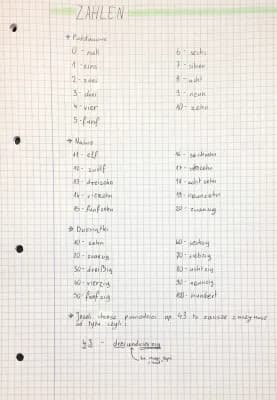 ZAHLEN
* Podstawowe
0 - null
1 - eins
2 - zwei
3 - drei
4 - vier
5 - fünf
6 - sechs
7 - sieben
8 - acht
9 - neun
10 - zehn
11 - elf
12 - zwölf
13 - dreizehn
14 - vierzehn
15 - fünfzehn
16 - sechzehn
17 - siebzehn
18 - acht zehn
19 - neunzehn
20 - zwanzig
* Dziesiątki
10 - zehn
20 - zwanzig
30 - dreißig
40 - vierzig
50 - fünfzig
60 - sechzig
70 - siebzig
80 - achtzig
90 - neunzig
100 - hundert
* Jeżeli chcesz powiedzieć np. 43 to zawsze zaczynasz
od tyłu czyli:
43 - dreiundvierzig